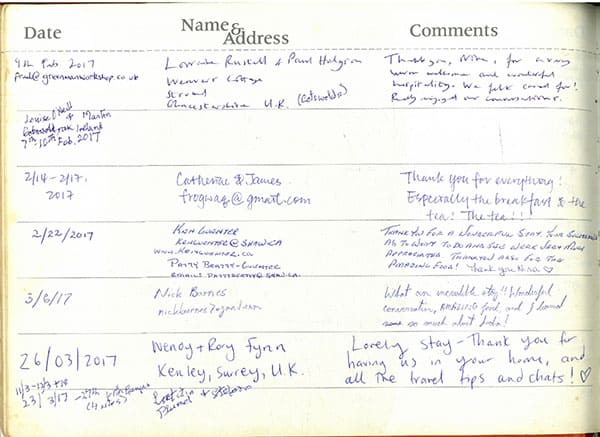 Date Name & Address Comments
9th Feb 2017
paul@greenmanworkshop.co.uk
Lorraine Russell & Paul
Cottage
Stroud
Gloucestershire U.K. (Cotswolds)
Thank you, Nina, for a very
warm welcome and wonderful
hospitality. We felt cared for!
Really enjoyed our conversations.
Louise O'Neill
& Martin
Ireland
7th 10th Feb. 2017
2/14-2/17.
2017
Catherine & James
frogwaq@gmail.com
Thank you for everything!
Especially the breakfast & the
tea! The tea!!
2/22/2017
Ken Gwenter
kengwenter@shaw.ca
www.kengwenter.ca
Patty Beatty-Gwenter
email: pattybeatty@shaw.ca
Thank you for a wonderful stay. Your suggestions
as to what to do and see were very much
appreciated. Thank you also for the
amazing food! Thank you Nina ♡
3/6/17
Nick Barnes
What an incredible stay!! Wonderful
conversation, amazing food, and I learned
so much about India!
26/03/2017
Wendy + Rory Fynn
Kenley, Surrey, U.K.
Lovely stay - Thank you for
having us in your home, and
all the travel tips and chats! ♡
11/3-12/3
23/3/17 -27th